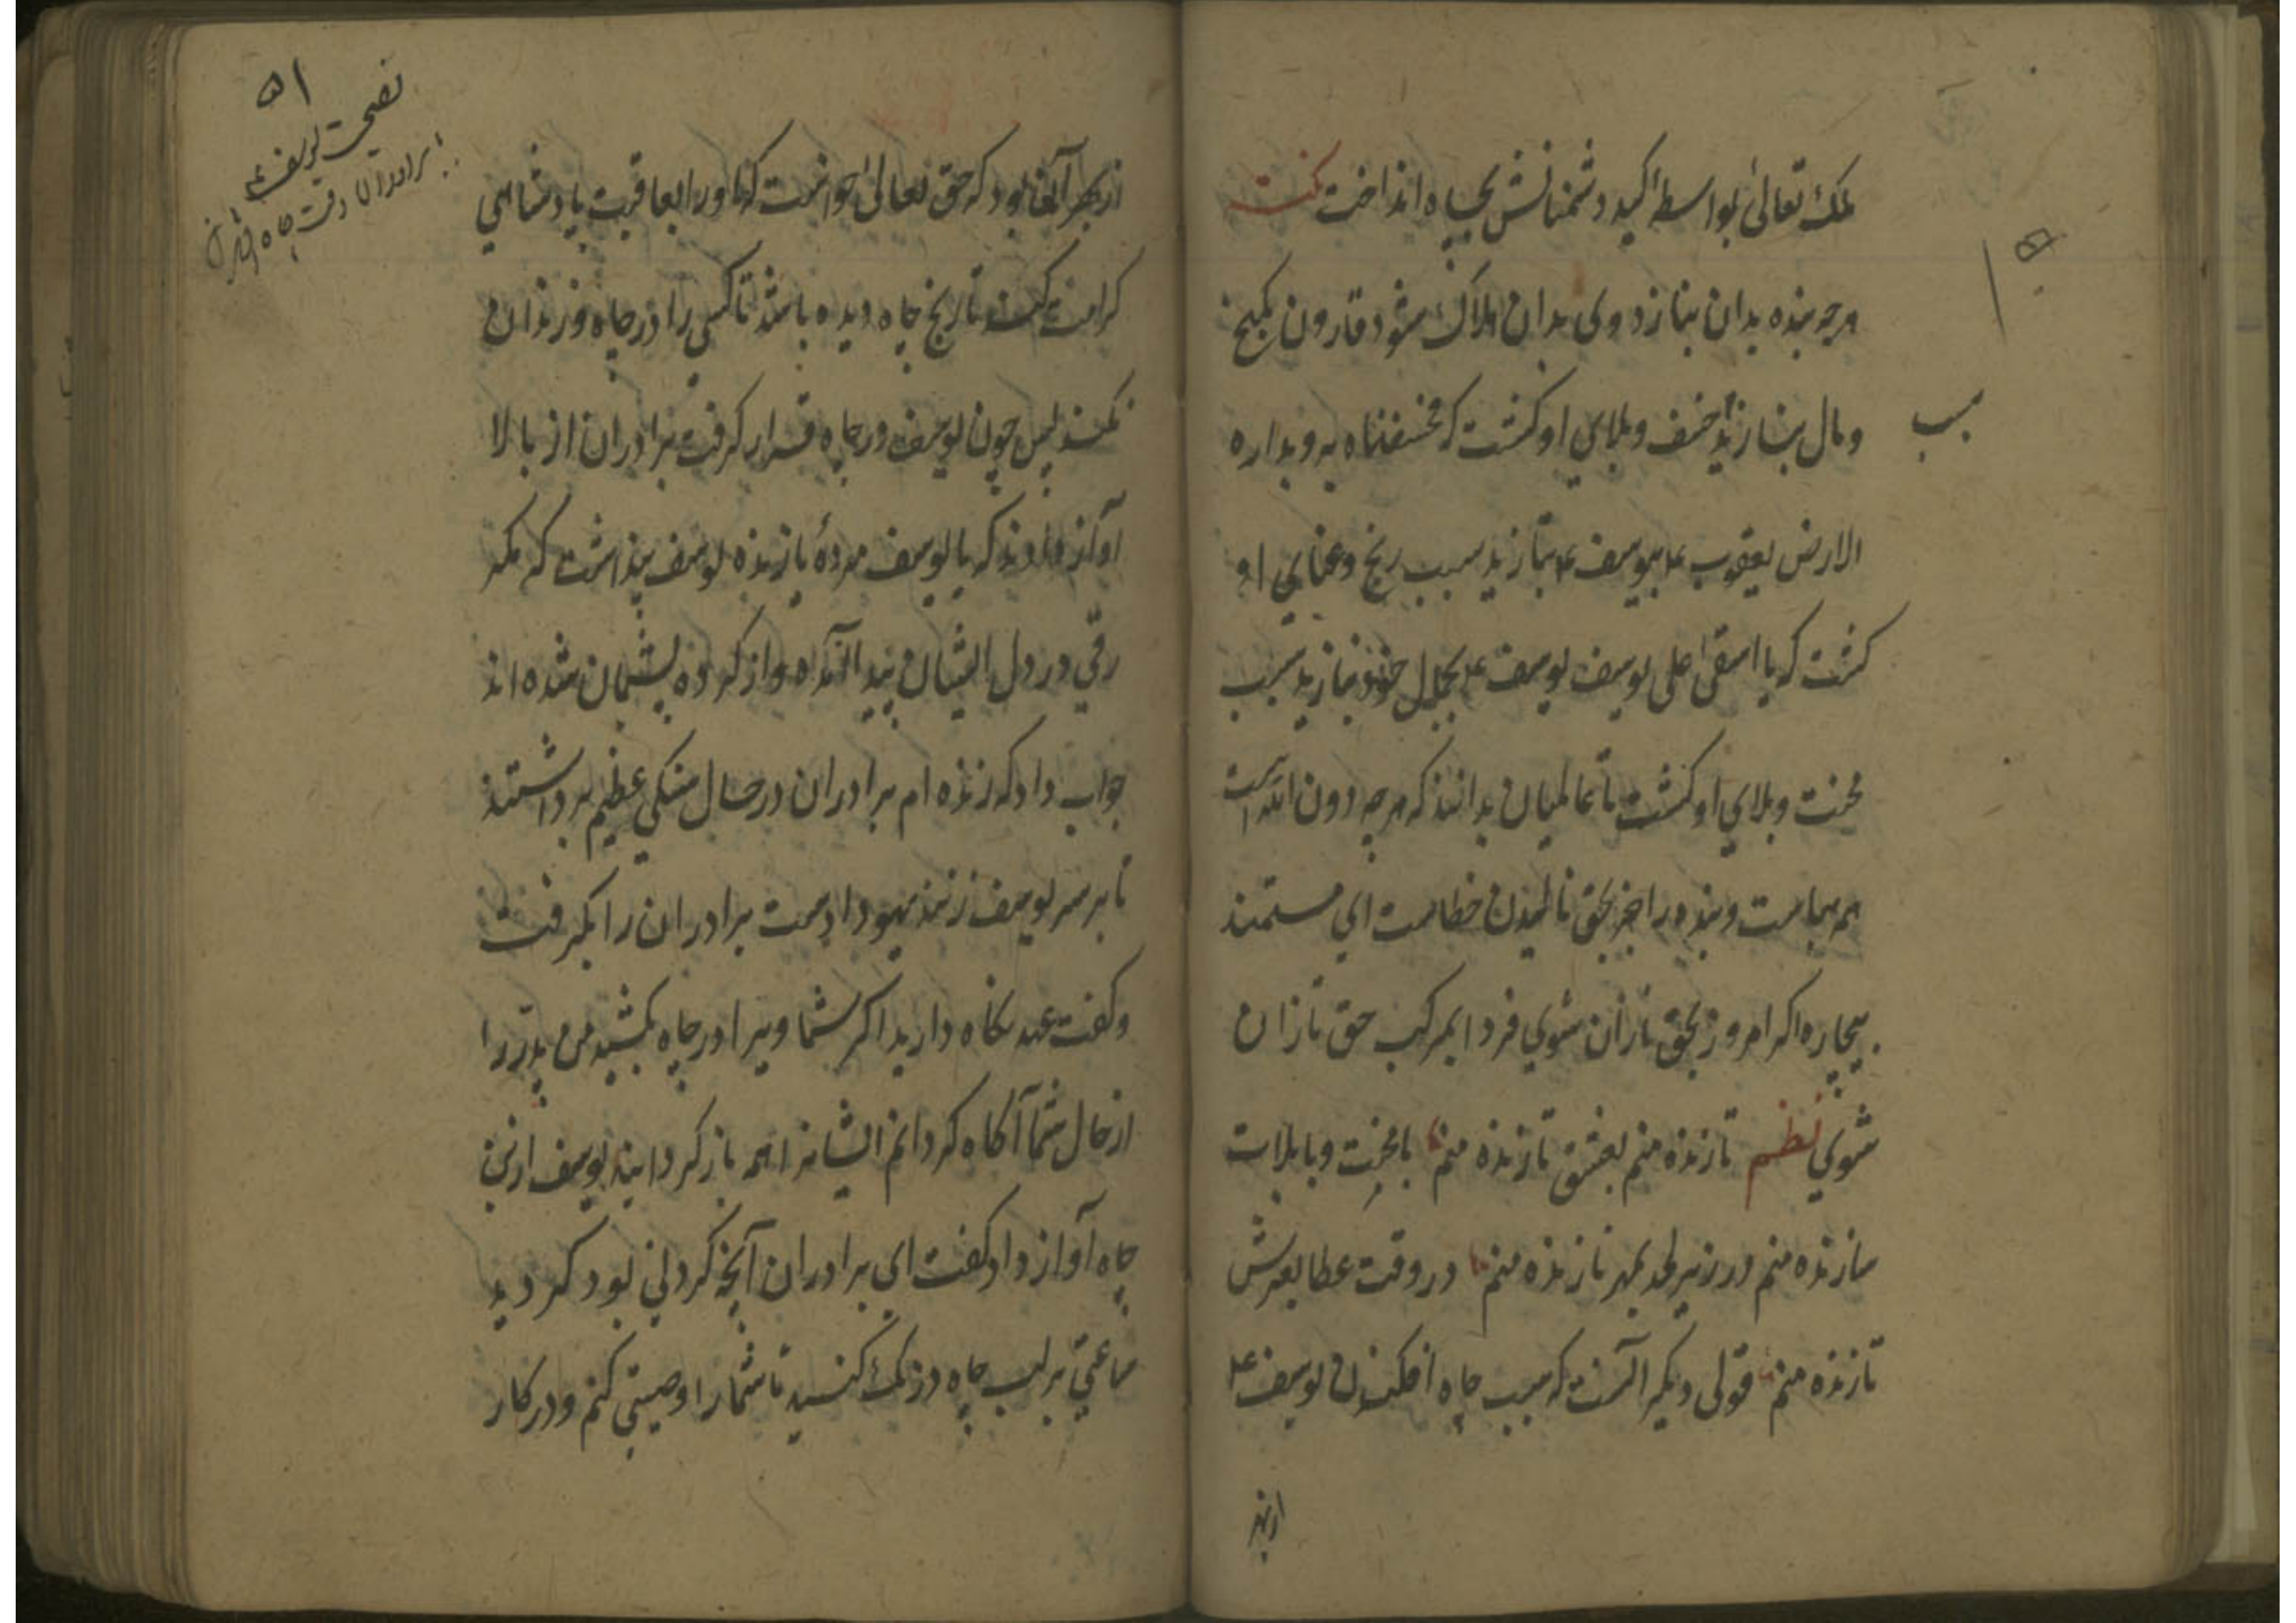 ملک تعالی بواسطه کید دشمنانش بچاه انداخت نکته
هرچه بنده بدان بنازد وی بدان هلاک شود قارون بکنج
و مال بنازید خسف وبلای او کشت که فخسفنا به وبداره
سبب
الارض یعقوب ع بیوسف ع بنازید سبب رنج وعنای او
کشت که یا اسفی علی یوسف یوسف ع بجمال خود بنازید سبب
محنت وبلای او کشت تا عالمیان بدانند که هرچه دون الله است
همه هباست وبنده را بجز بحق نالیدن خطاست ای مستمند
بیچاره اکر امروز بحق نازان شوی فردا بمرکب حق تازان
شوی نظم تا زنده منم بعشق نازنده منم با محنت وبا بلات
سازنده منم در زیر لحد بمهر نازنده منم در وقت عطا بعرش
تازنده منم قولی دیکر آنست که سبب چاه افکندن یوسف ع
از بهر
۵۱
نصیحت یوسف ع
برادران را وقت چاه
از بهر آنها بود که حق تعالی خواست که او را بعاقبت پادشاهی
کرامت کند تا رنج چاه دیده باشد تا کسی را در چاه وزندان
نکند پس چون یوسف در چاه قرار کرفت برادران از بالا
آواز دادند که یا یوسف مردهٔ یا زنده یوسف پنداشت که مکر
رقّی در دل ایشان پیدا آمده و از کرده پشیمان شده اند
جواب داد که زنده ام برادران در حال سنکی عظیم برداشتند
تا بر سر یوسف زنند یهودا دست برادران را بکرفت
وکفت عهد نکاه دارید اکر شما ویرا در چاه بکشید من پدر را
از حال شما آکاه کردانم ایشانرا همه باز کردانید یوسف از بن
چاه آواز داد کفت ای برادران آنچه کردنی بود کردید
ساعتی بر لب چاه درنک کنید تا شما را وصیتی کنم ودر کار